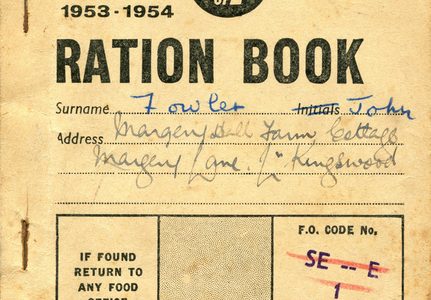 OF
1953-1954
RATION BOOK
Surname Fowler Initials John
Address Margery Hall Farm Cottage
Margery Lane. Kingswood
IF FOUND
RETURN TO
ANY FOOD
OFFICE
F.O. CODE No.
SE -- E
1